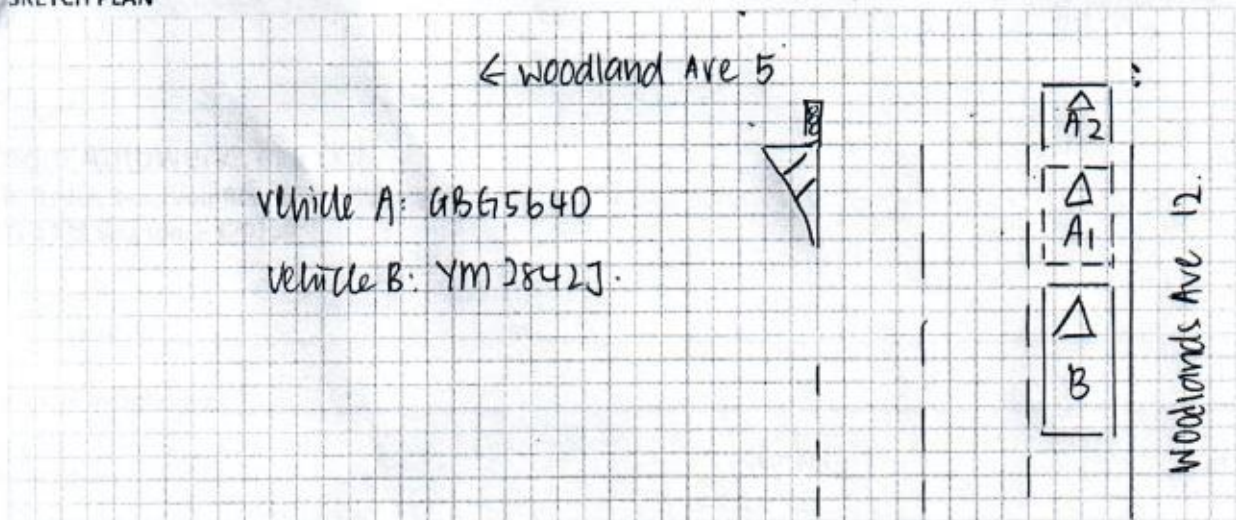 SKETCH PLAN
← woodland Ave 5
A2
Vehicle A: GBG5640
A1
Vehicle B: YM2842J.
B
Woodlands Ave 12.